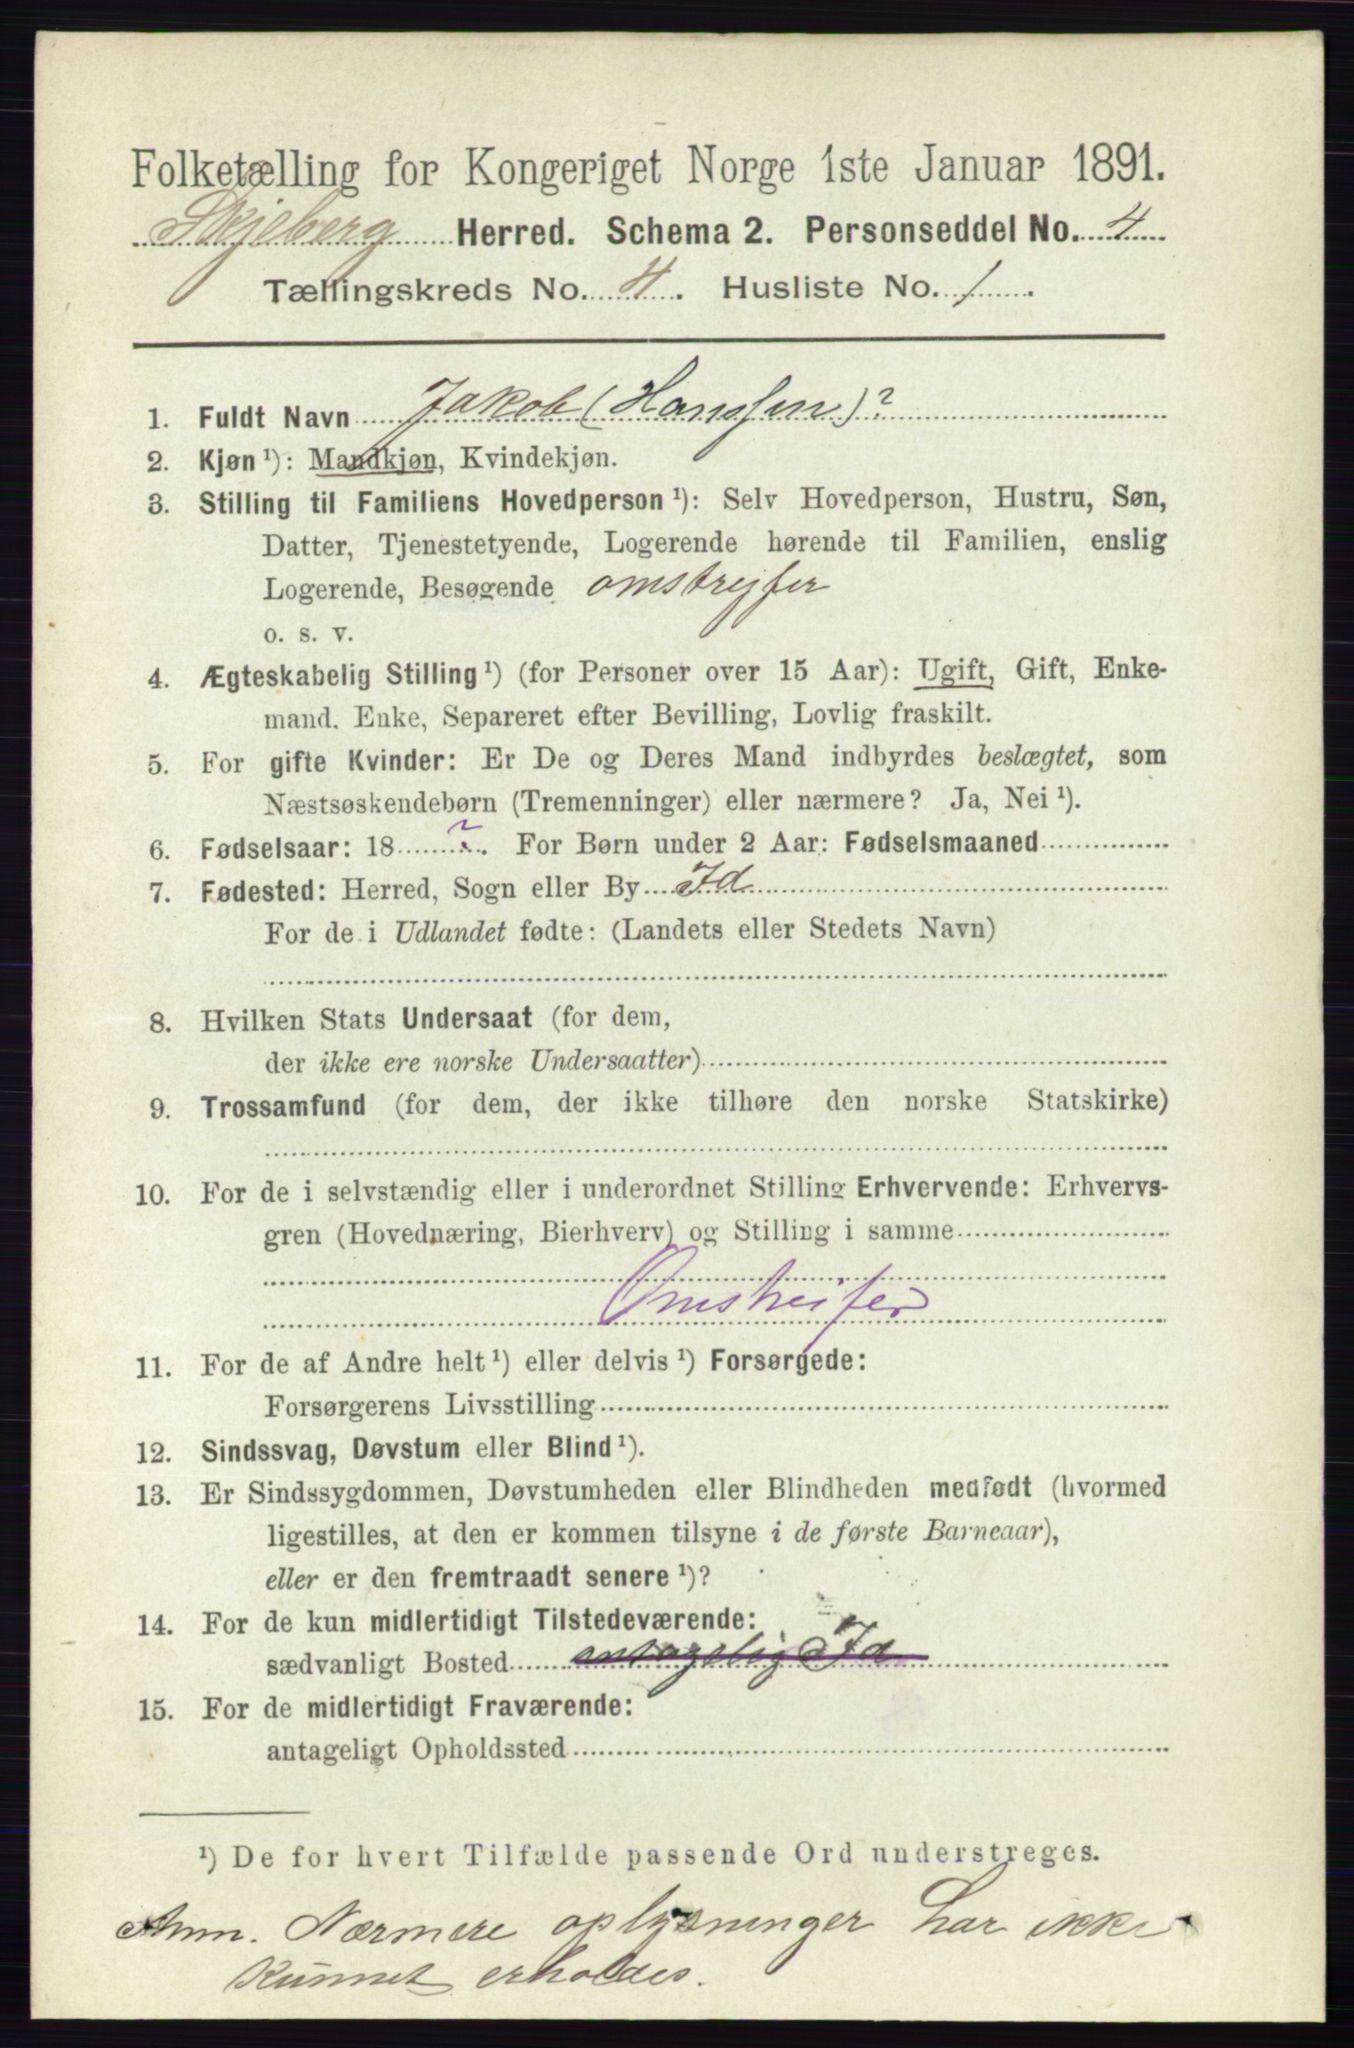 Folketælling for Kongeriget Norge 1ste Januar 1891.
Skjeberg Herred. Schema 2. Personseddel No. 4
Tællingskreds No. 4. Husliste No. 1.
1. Fuldt Navn Jakob (Hanssen)?
2. Kjøn ¹): Mandkjøn, Kvindekjøn.
3. Stilling til Familiens Hovedperson ¹): Selv Hovedperson, Hustru, Søn,
Datter, Tjenestetyende, Logerende hørende til Familien, enslig
Logerende, Besøgende omstrejfer
o. s. v.
4. Ægteskabelig Stilling ¹) (for Personer over 15 Aar): Ugift, Gift, Enke-
mand. Enke, Separeret efter Bevilling, Lovlig fraskilt.
5. For gifte Kvinder: Er De og Deres Mand indbyrdes beslægtet, som
Næstsøskendebørn (Tremenninger) eller nærmere? Ja, Nei ¹).
6. Fødselsaar: 18 ?. For Børn under 2 Aar: Fødselsmaaned
7. Fødested: Herred, Sogn eller By Id
For de i Udlandet fødte: (Landets eller Stedets Navn)
8. Hvilken Stats Undersaat (for dem,
der ikke ere norske Undersaatter)
9. Trossamfund (for dem, der ikke tilhøre den norske Statskirke)
10. For de i selvstændig eller i underordnet Stilling Erhvervende: Erhvervs-
gren (Hovednæring, Bierhverv) og Stilling i samme
Omstreifer
11. For de af Andre helt ¹) eller delvis ¹) Forsørgede:
Forsørgerens Livsstilling
12. Sindssvag, Døvstum eller Blind ¹).
13. Er Sindssygdommen, Døvstumheden eller Blindheden medfødt (hvormed
ligestilles, at den er kommen tilsyne i de første Barneaar),
eller er den fremtraadt senere ¹)?
14. For de kun midlertidigt Tilstedeværende:
sædvanligt Bosted antagelig Id
15. For de midlertidigt Fraværende:
antageligt Opholdssted
¹) De for hvert Tilfælde passende Ord understreges.
Anm. Nærmere oplysninger har ikke
kunnet erholdes.